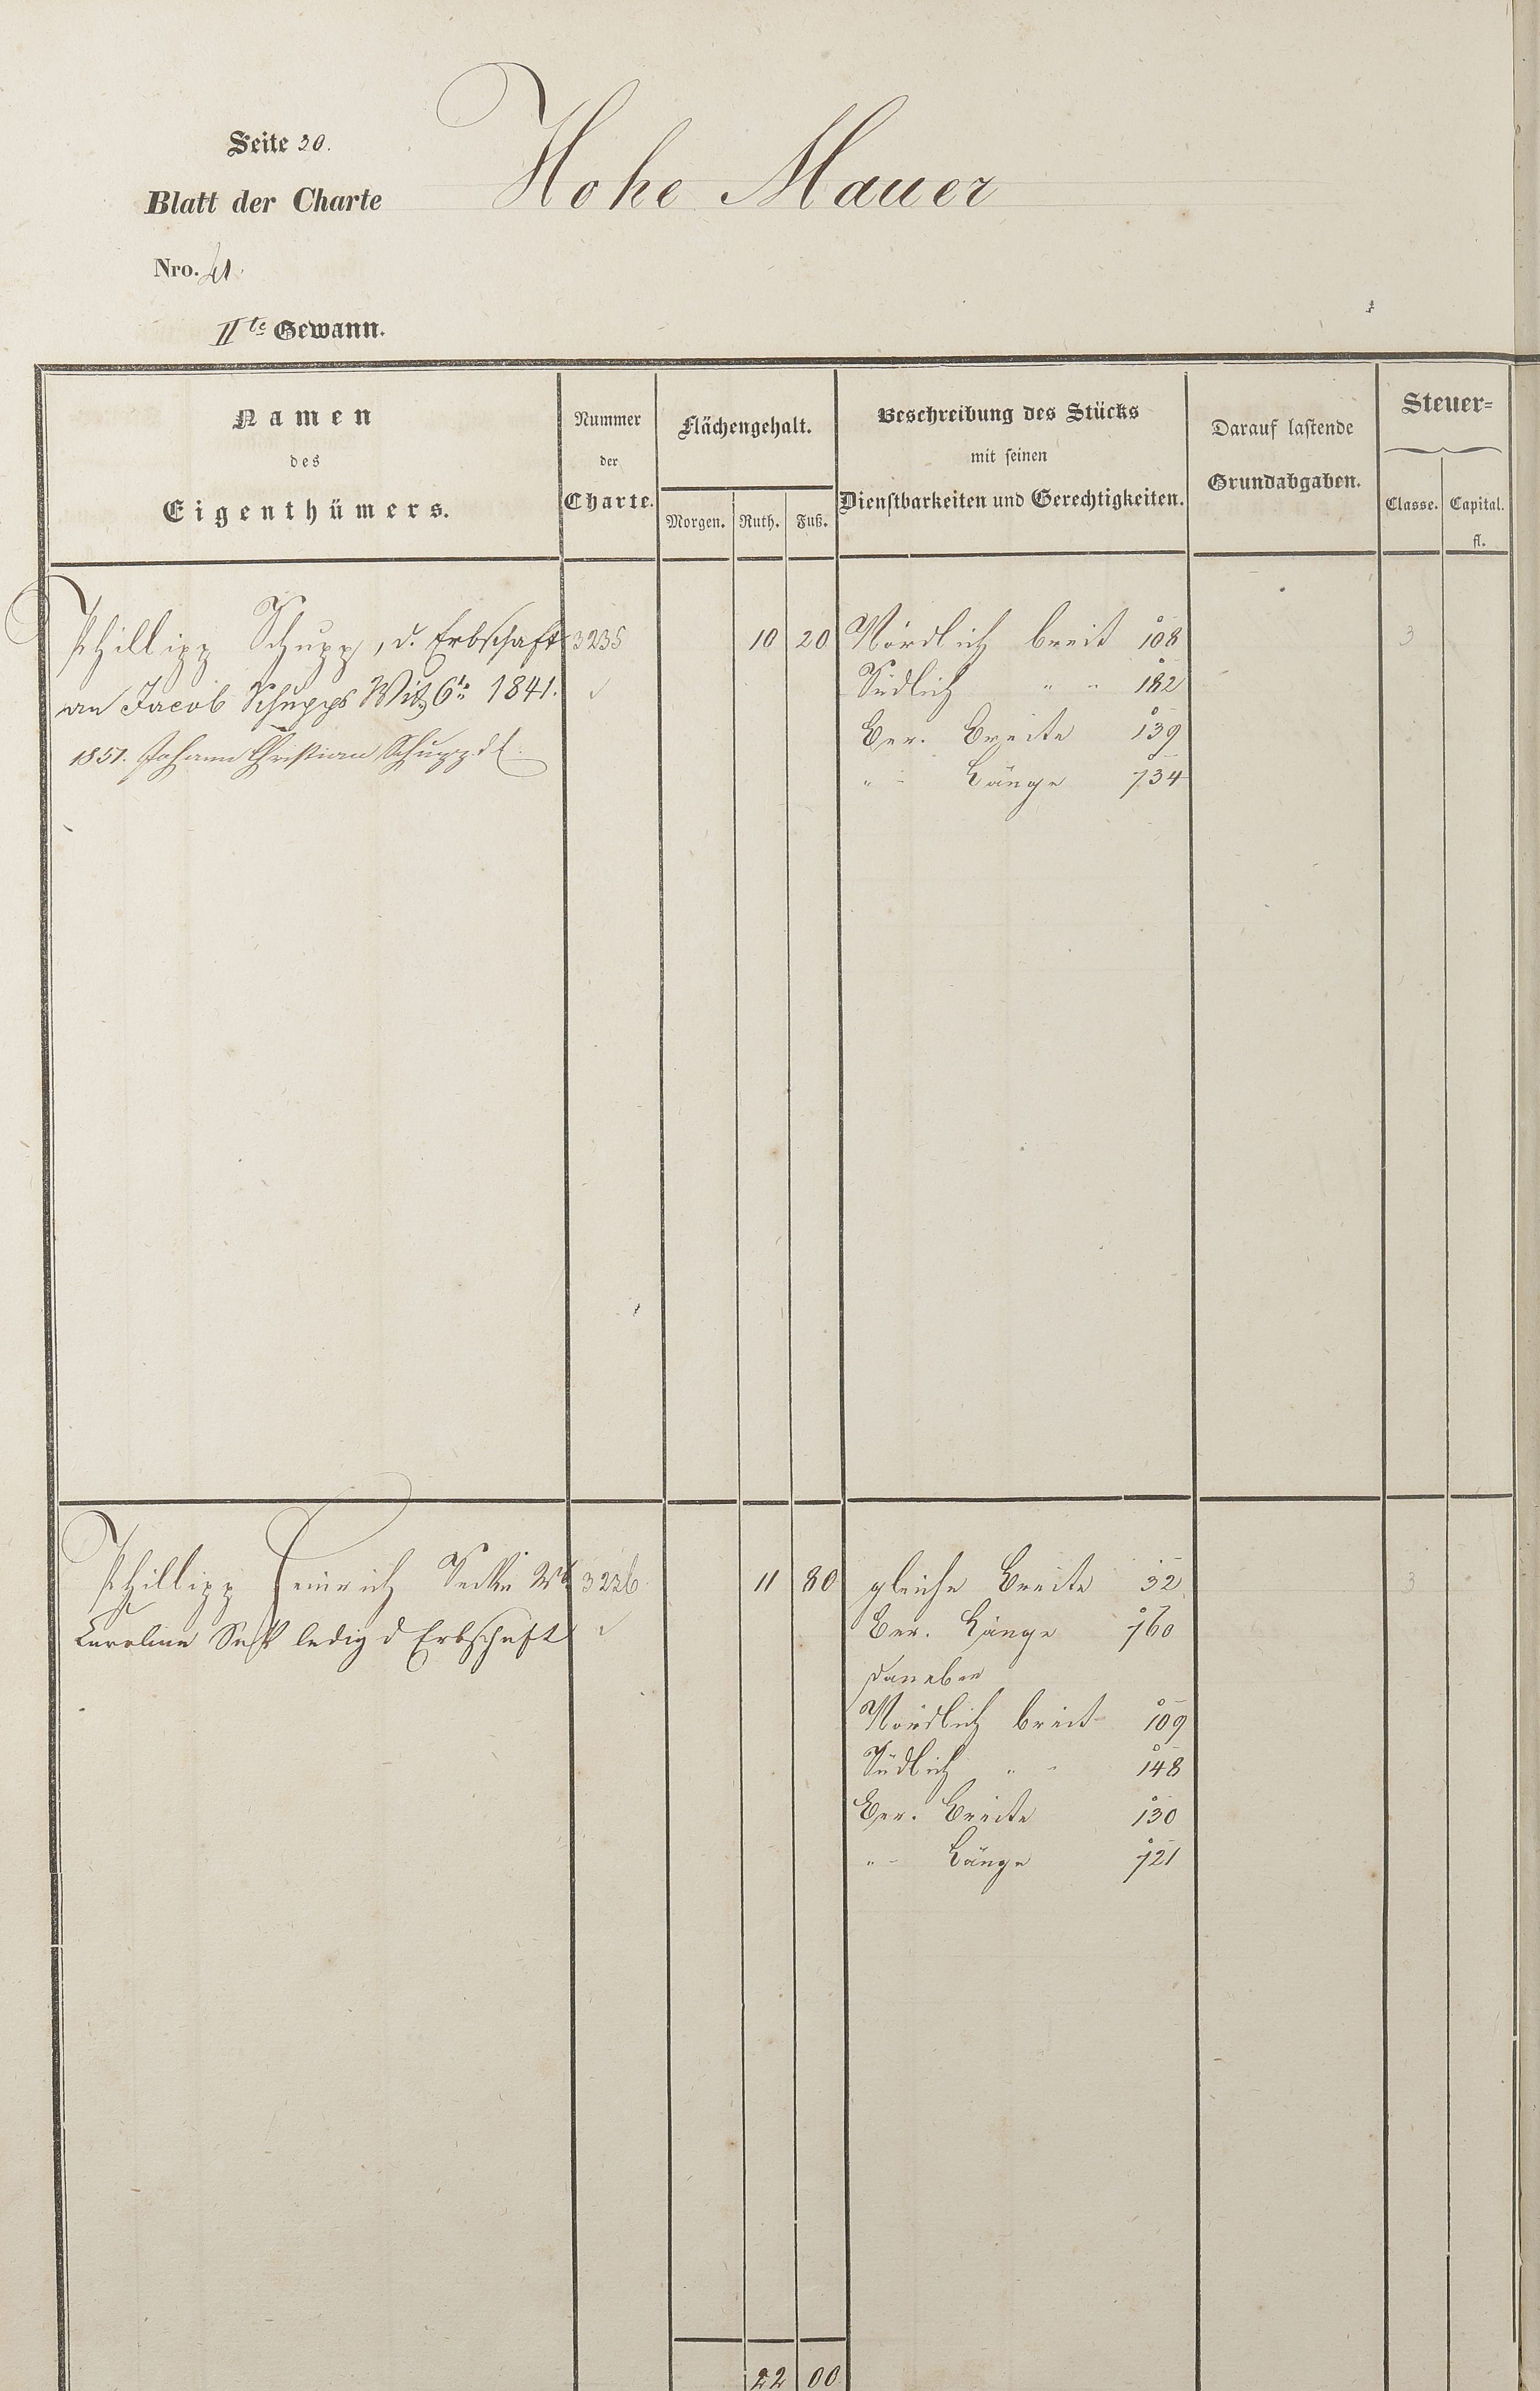 Seite 30.
Blatt der Charte
Hohe Mauer
Nro. 41.
IIte Gewann.
Namen
des
Eigenthümers.
Nummer
der
Charte.
Flächengehalt.
Morgen. Ruth. Fuß.
Beschreibung des Stücks
mit seinen
Dienstbarkeiten und Gerechtigkeiten.
Darauf lastende
Grundabgaben.
Steuer=
Classe. Capital.
fl.
Phillipp Schupp, d. Erbschaft 3235 10 20 Nördlich breit 108 3
an Jacob Schupps 1841. Südlich " " 182
1851. Johann Christian Schupp Ber. Breite 139
" - Länge 734
Phillipp Heinrich 11 80 gleiche Breite 32 3
Caroline ledig d Erbschaft Ber. Länge 760
daneben
Nördlich breit 109
Südlich " - 148
Ber. Breite 130
" - Länge 721
22 00